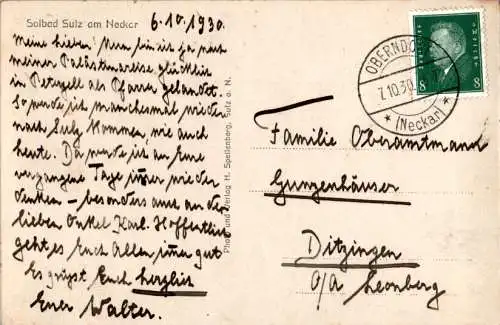 Solbad Sulz am Neckar
6.10.1930.
Meine Lieben! Nun bin ich ja nach
meiner Palästinareise glücklich
in Peterzell als Pfarrer gelandet.
So werde ich manchesmal wieder
nach Sulz kommen, wie auch
heute. Da werde ich an Eure
vergangene Tage immer wieder
denken – besonders auch an den
lieben Onkel Karl. Hoffentlich
geht es Euch Allen immer gut
Es grüsst Euch herzlich
Euer Walter.
Photo und Verlag H. Spellenberg, Sulz a. N.
OBERNDORF
7.10.30
* (Neckar) *
8 8
Familie Oberamtmann
Gunzenhäuser
Ditzingen
O/A Leonberg